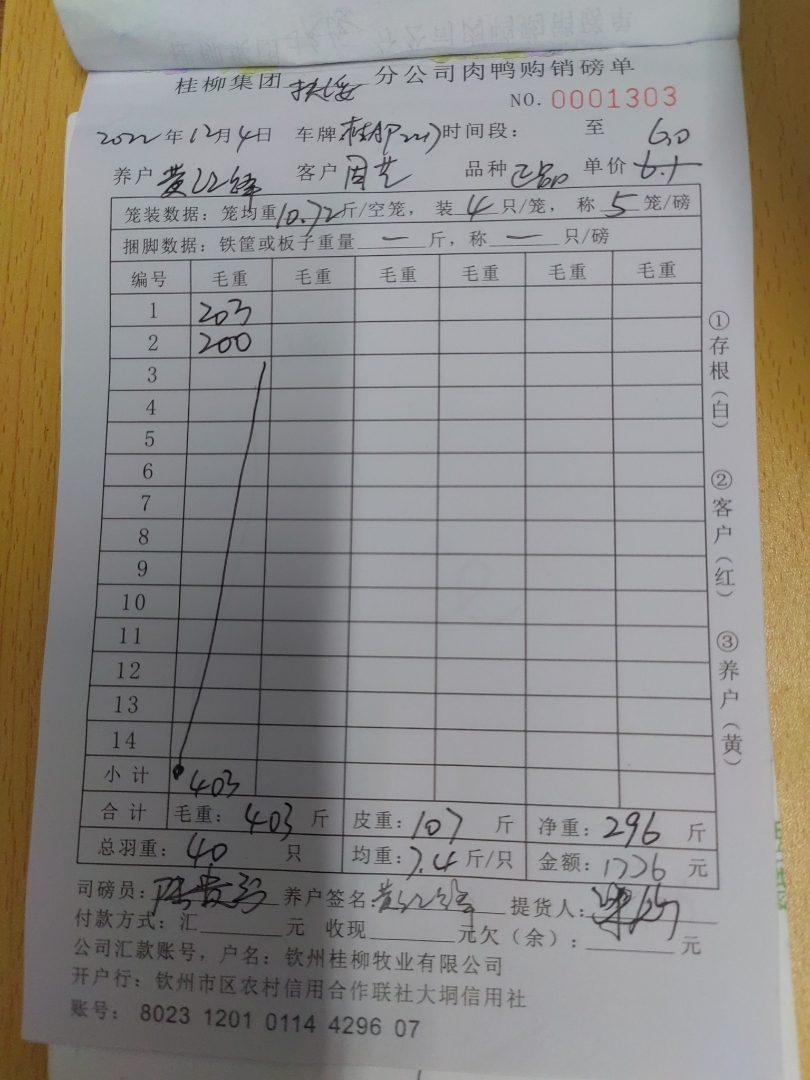 桂柳集团 扶绥 分公司肉鸭购销磅单
NO. 0001303
2022年12月4日 车牌 时间段: 至 6.0
养户 黄 客户 周 品种 正品 单价 6.5
笼装数据: 笼均重10.72斤/空笼, 装 4 只/笼, 称 5 笼/磅
捆脚数据: 铁筐或板子重量 一 斤, 称 一 只/磅
编号 毛重 毛重 毛重 毛重 毛重 毛重
1 203
2 200
3
4
5
6
7
8
9
10
11
12
13
14
小计 403
合计 毛重: 403 斤 皮重: 107 斤 净重: 296 斤
总羽重: 40 只 均重: 7.4 斤/只 金额: 1776 元
司磅员: 养户签名 黄 提货人:
付款方式: 汇 元 收现 元欠(余): 元
公司汇款账号, 户名: 钦州桂柳牧业有限公司
开户行: 钦州市区农村信用合作联社大垌信用社
账号: 8023 1201 0114 4296 07
①存根(白)
②客户(红)
③养户(黄)